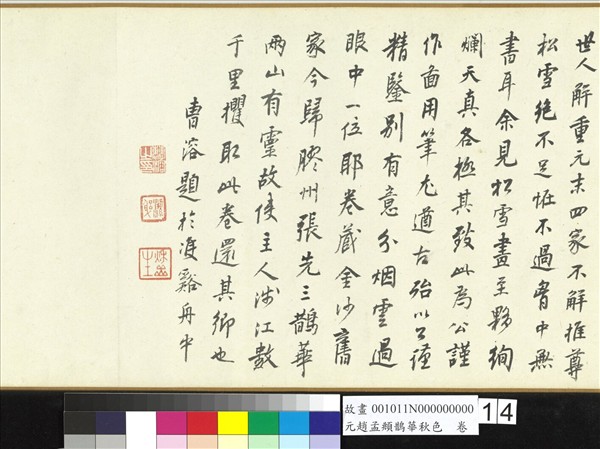 世人解重元末四家不解推尊
松雪絕不足恠不過胷中無
書耳余見松雪畫至夥絢
爛天真各極其致此為公謹
作畵用筆尤遒古殆以公謹
精鑒別有意分烟雲過
眼中一位耶卷藏金沙舊
家今歸膠州張先三鵲華
兩山有靈故使主人涉江數
千里攫取此卷還其鄉也
曹溶題於雙谿舟中
故畫 001011N000000000
元趙孟頫鵲華秋色 卷
14